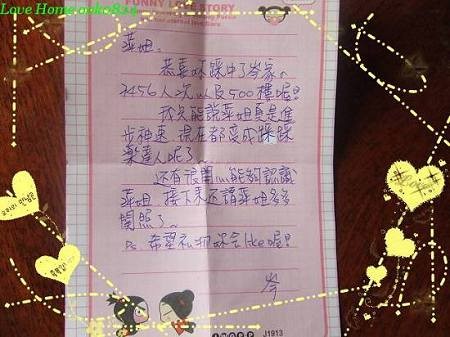 Love Home
FUNNY LOVE STORY
萍姐、
恭喜妳踩中了岑家、
3456人次以及500樓喔!
我只能說萍姐真是進
步神速、現在都変成踩踩
樂達人呢了~
还有很開心能夠認識
萍姐 接下來还請萍姐多多
関照了~
Ps. 希望私物妳会like喔!
岑
J1913